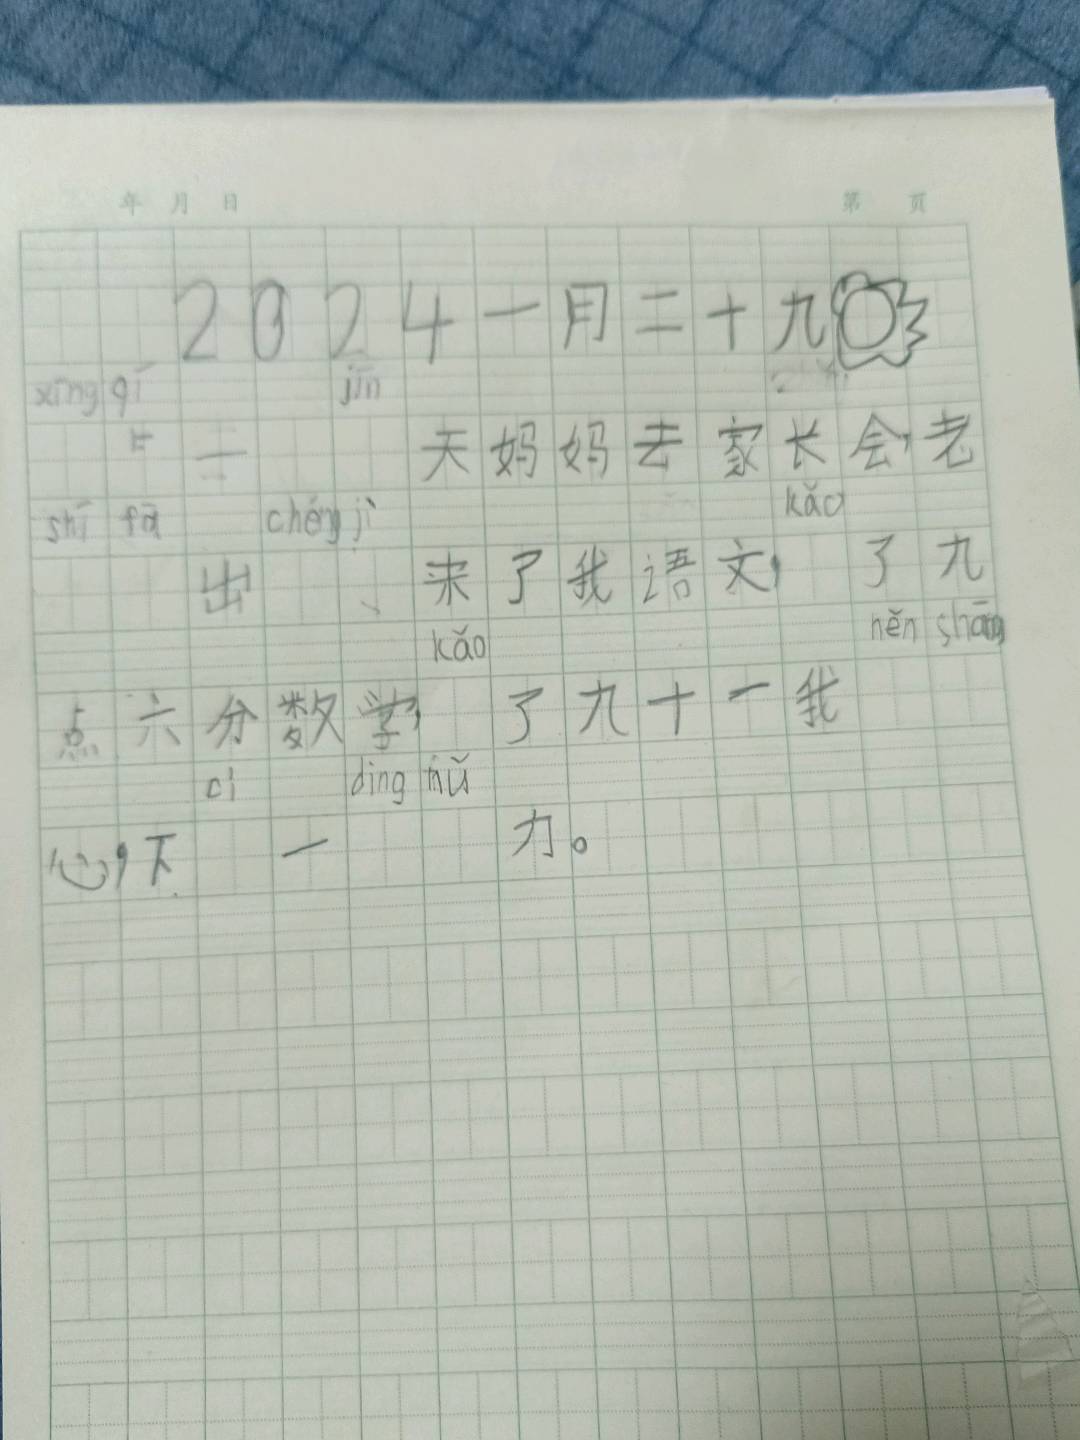 年 月 日 第 页
2024一月二十九
xīng qī jīn
二 天妈妈去家长会,老
shī fā chéng jì kǎo
出 来了我语文, 了九
kǎo něn shāng
点六分数学, 了九十一我
cì dìng nǔ
心,下 一 力。